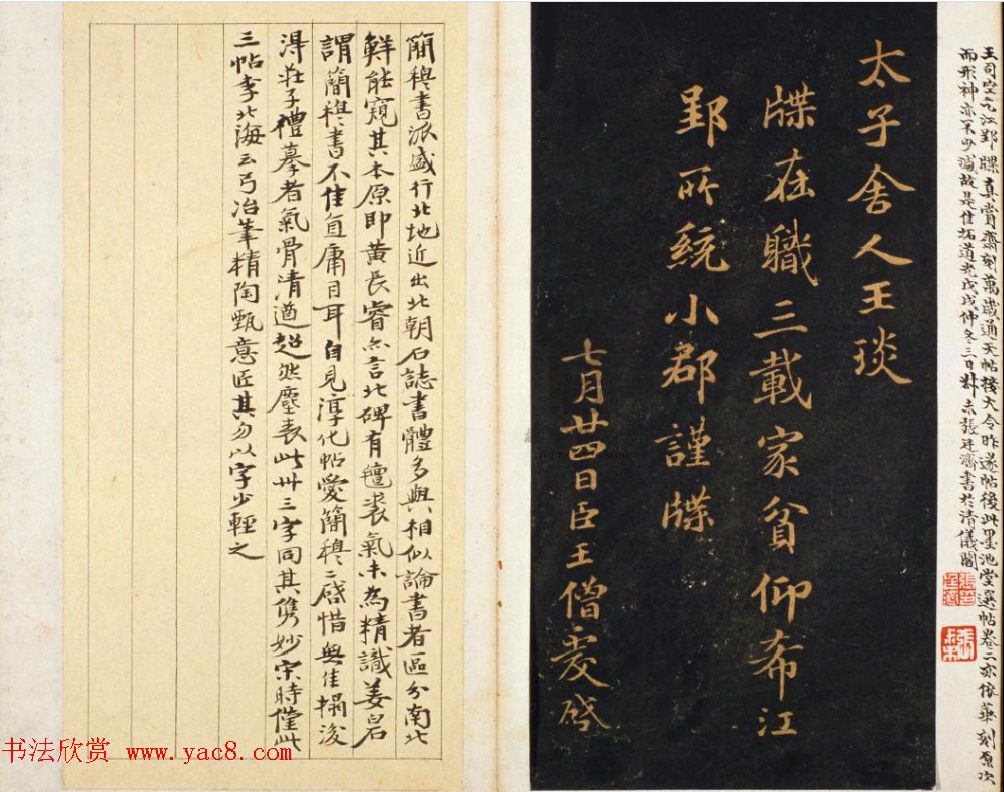 王司空之江郢牒真賞齋刻萬歲通天帖接大令昨遂帖後此墨池堂選帖卷三亦依華刻原次
而形神亦不少減故是佳拓道光戊戌仲冬三日叔未張廷濟書於清儀閣
太子舍人王琰
牒在職三載家貧仰希江
郢所統小郡謹牒
七月廿四日臣王僧虔啓
簡穆書派盛行北地近出北朝石誌書體多與相似論書者區分南北
鮮能窺其本原即黃長睿亦言北碑有氊裘氣未為精識姜君
謂簡穆書不佳直庸目耳自見淳化帖愛簡穆二啓惜無佳搨後
淂莊子禮摹者氣骨清遒超然塵表此卅三字同其雋妙宋時僅此
三帖李北海云弓冶筆精陶甄意匠其勿以字少輕之
书法欣赏 www.yac8.com